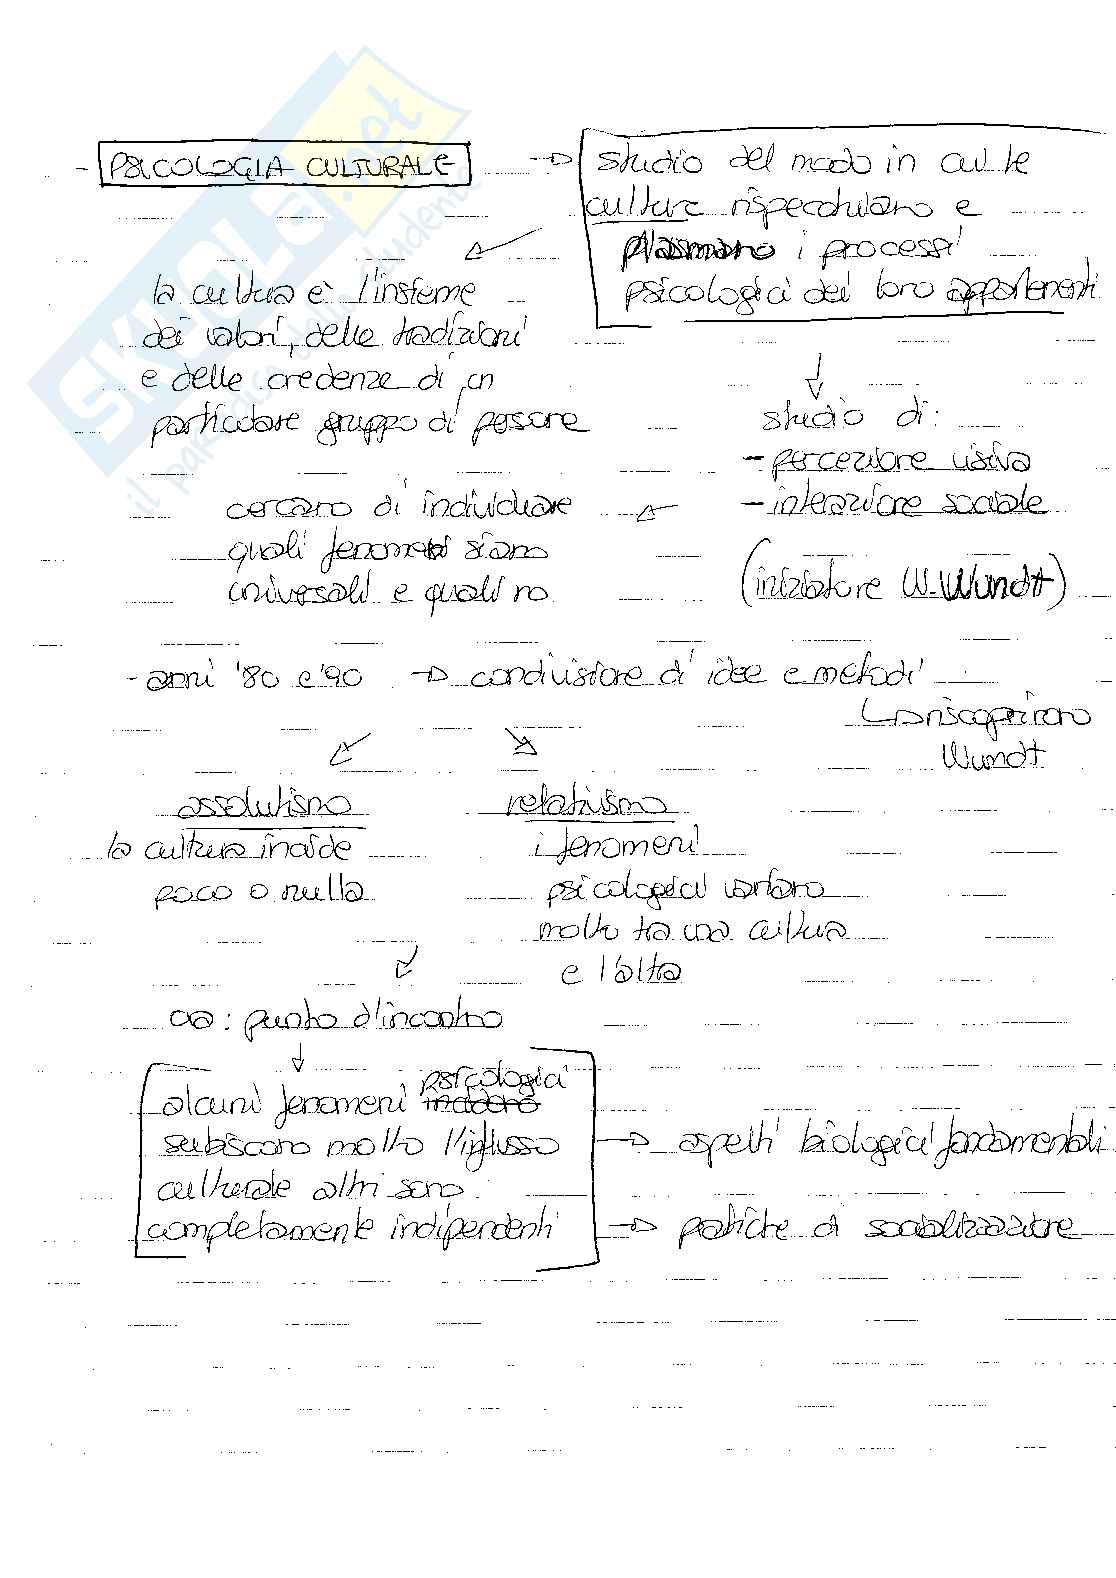 - PSICOLOGIA CULTURALE → studio del modo in cui le
culture rispecchiano e
plasmano i processi
psicologici dei loro appartenenti
la cultura è l'insieme
dei valori, delle tradizioni
e delle credenze di un
particolare gruppo di persone
studio di:
- percezione visiva
- interazione sociale
cercano di individuare
quali fenomeni siano
universali e quali no
(iniziatore W. Wundt)
- anni '80 e '90 → condivisione di idee e metodi
↳ riscoprirono
Wundt
assolutismo
la cultura incide
poco o nulla
relativismo
i fenomeni
psicologici variano
molto tra una cultura
e l'altra
ora: punto d'incontro
alcuni fenomeni psicologici
subiscono molto l'influsso → aspetti biologici fondamentali
culturale altri sono
completamente indipendenti → pratiche di socializzazione
SKUOLA.net
il paradiso dello studente